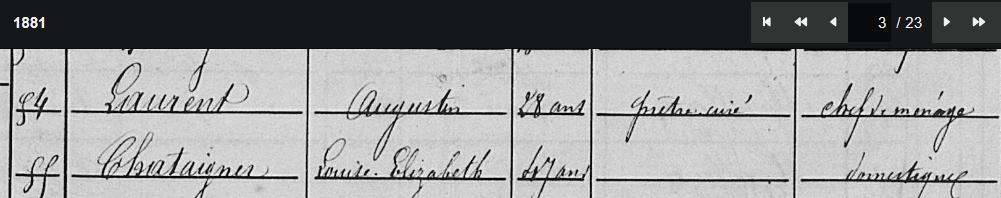 1881 3 / 23
54 Laurent Augustin 28 ans prêtre curé chef de ménage
55 Chataigner Louise Elizabeth 47 ans domestique